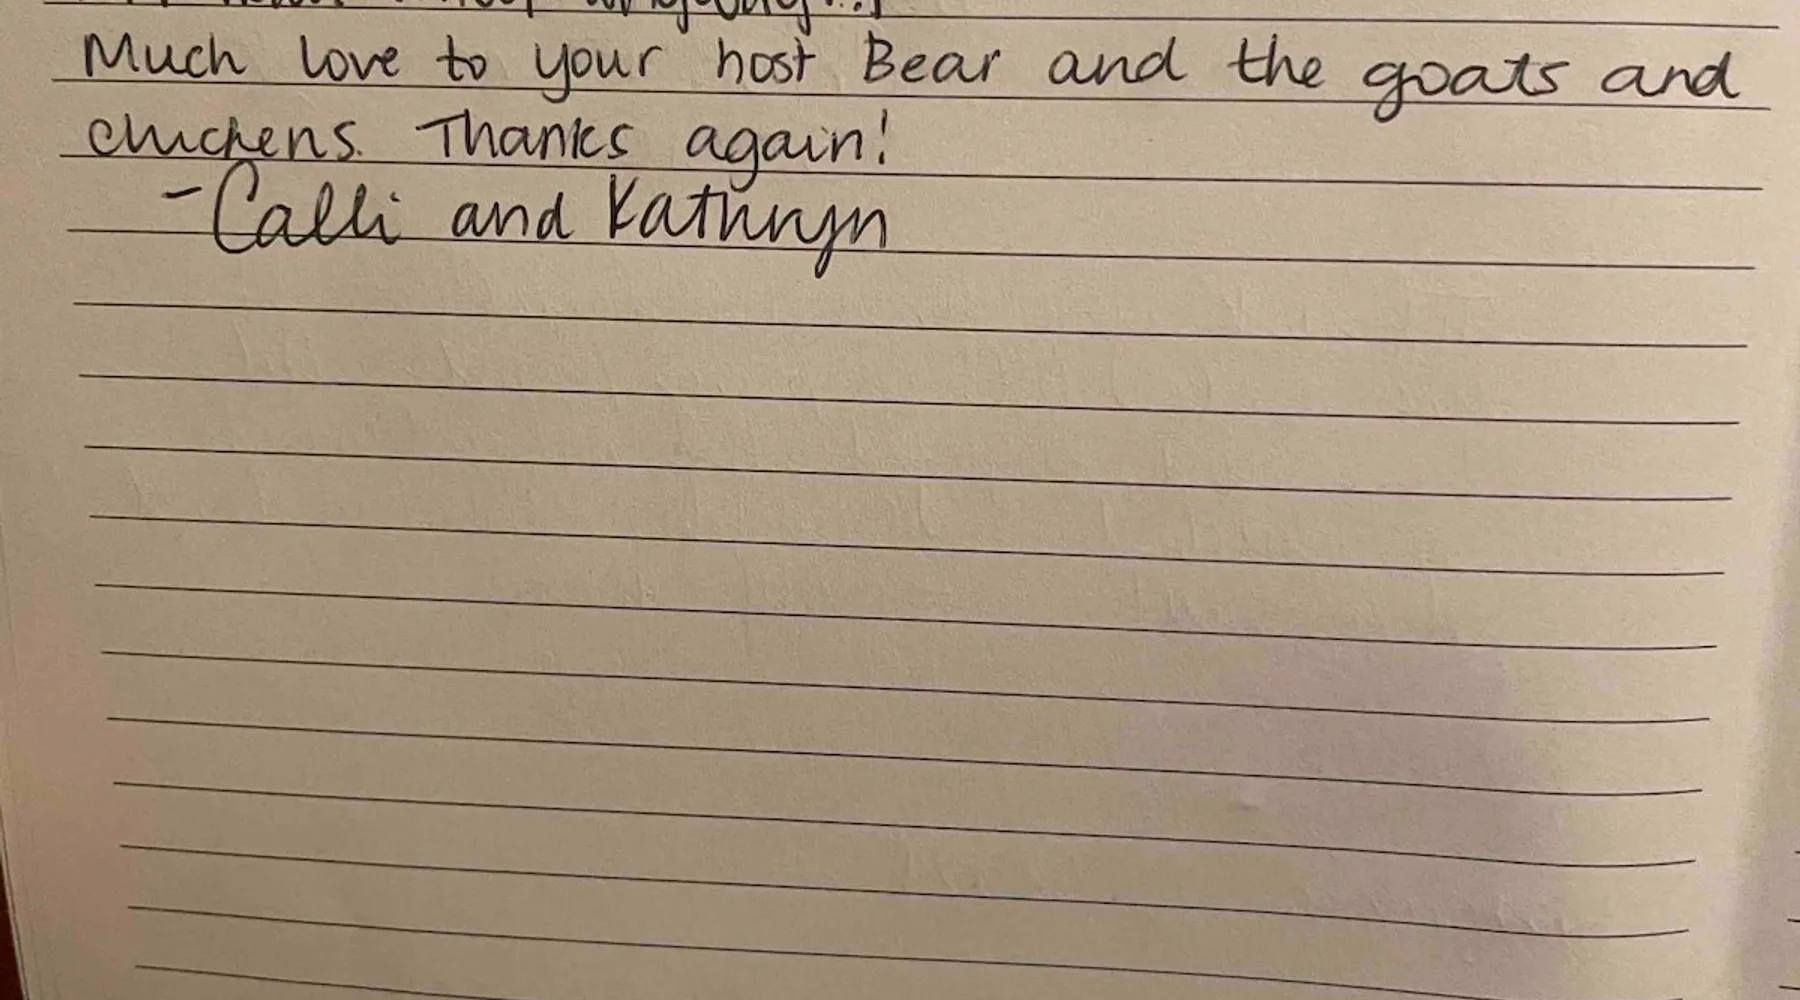 Much love to your host Bear and the goats and
chickens. Thanks again!
-Calli and Kathryn